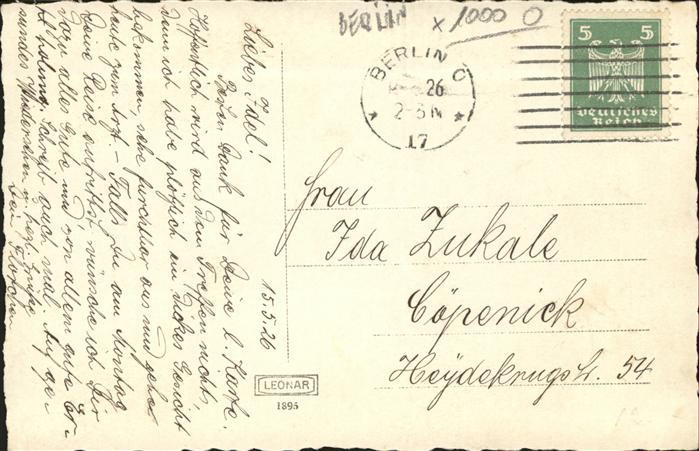 BERLIN x 1000 O
BERLIN C
26
2-3 N
17
5 5
Deutsches
Reich
15.5.26
Liebes Idel!
Besten Dank für Deine l. Karte.
Hoffentlich wird aus dem Treffen nichts,
denn ich habe plötzlich ein dickes Gesicht
bekommen, sehe furchtbar aus und gehe
heute zum Arzt. - Falls Du am Montag
Deine Reise antrittst, wünsche ich Dir
vom alles Gute und vor allem gute Er-
holung. Schreib auch mal. Auf ge-
sundes Wiedersehen u. herzl. Grüße
Dein
Frau
Ida Zukale
Cöpenick
Heydekrugstr. 54
LEONAR
1895